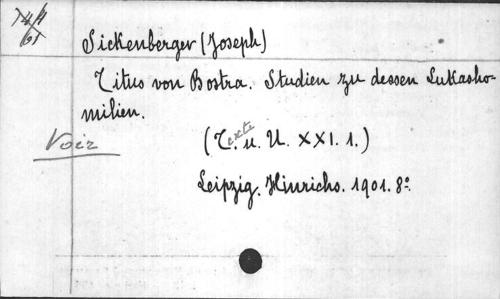 Sickenberger (Joseph)
Titus von Bostra. Studien zu dessen Lukasho-
milien.
Voir
(Texte u. U. XXI. 1.)
Leipzig. Hinrichs. 1901. 8º.